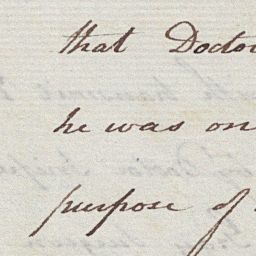 that Docto
he was on
purpose of